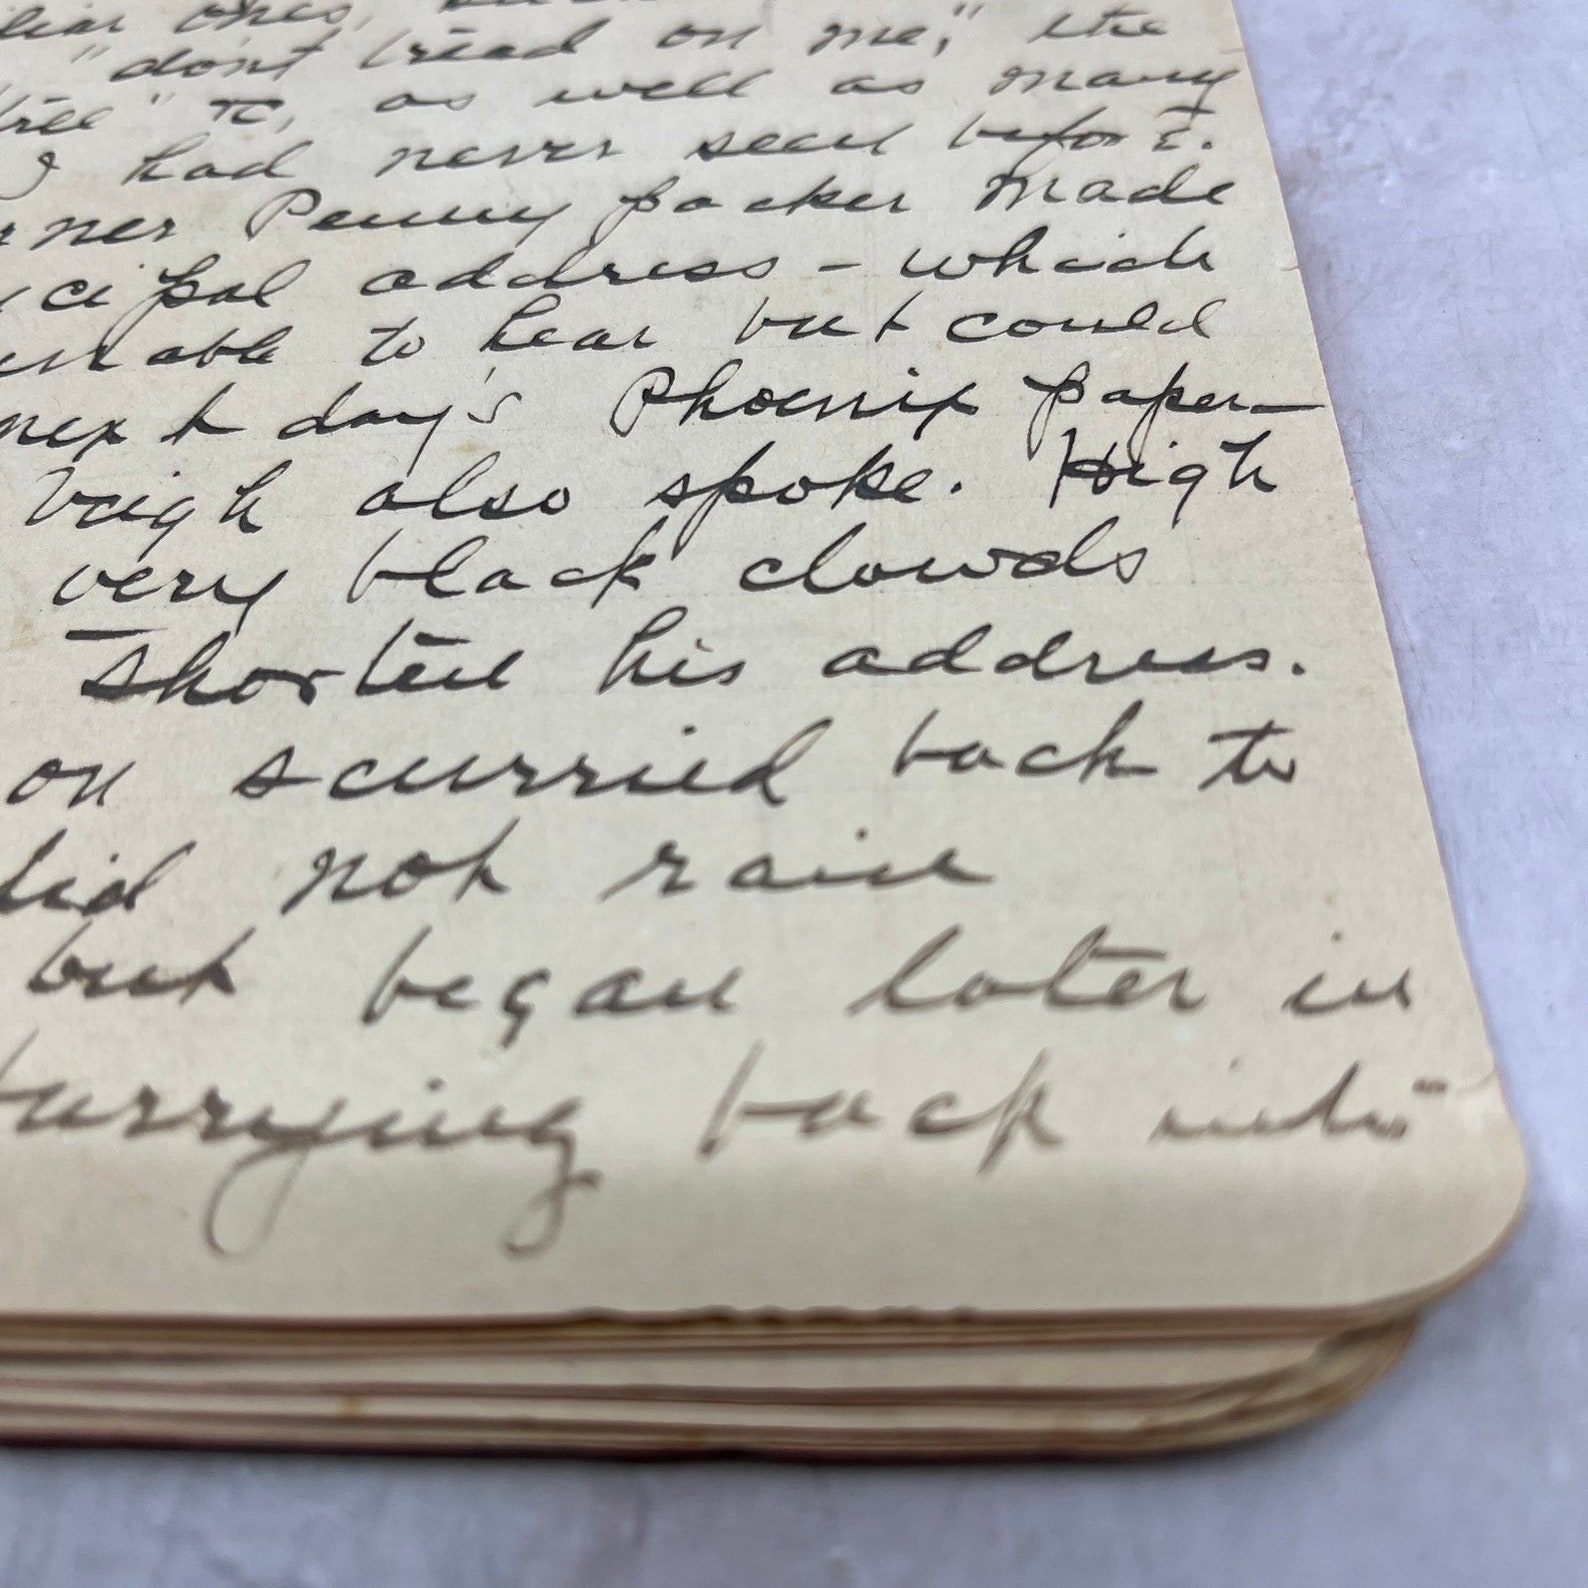 liar ones,
"don't tread on me," the
tree" &c, as well as many
I had never seen before.
rner Pennypacker made
ncipal address - which
unable to hear but could
next day's Phoenix paper-
Veigh also spoke. High
very black clouds
shorten his address.
on scurried back to
did not rain
but began later in
hurrying back into